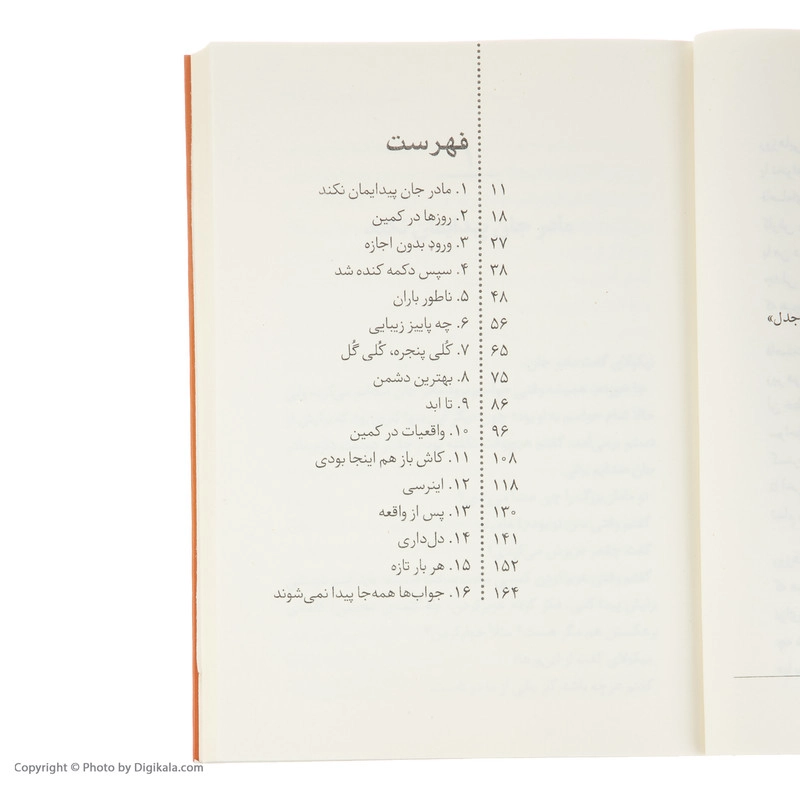 فهرست
۱۱ ۱. مادر جان پیدایمان نکند
۱۸ ۲. روزها در کمین
۲۷ ۳. ورودِ بدون اجازه
۳۸ ۴. سپس دکمه کنده شد
۴۸ ۵. ناطور باران
۵۶ ۶. چه پاییز زیبایی
۶۵ ۷. کُلی پنجره، کُلی گُل
۷۵ ۸. بهترین دشمن
۸۶ ۹. تا ابد
۹۶ ۱۰. واقعیات در کمین
۱۰۸ ۱۱. کاش باز هم اینجا بودی
۱۱۸ ۱۲. اینرسی
۱۳۰ ۱۳. پس از واقعه
۱۴۱ ۱۴. دل‌داری
۱۵۲ ۱۵. هر بار تازه
۱۶۴ ۱۶. جواب‌ها همه‌جا پیدا نمی‌شوند
جدل»
Copyright © Photo by Digikala.com